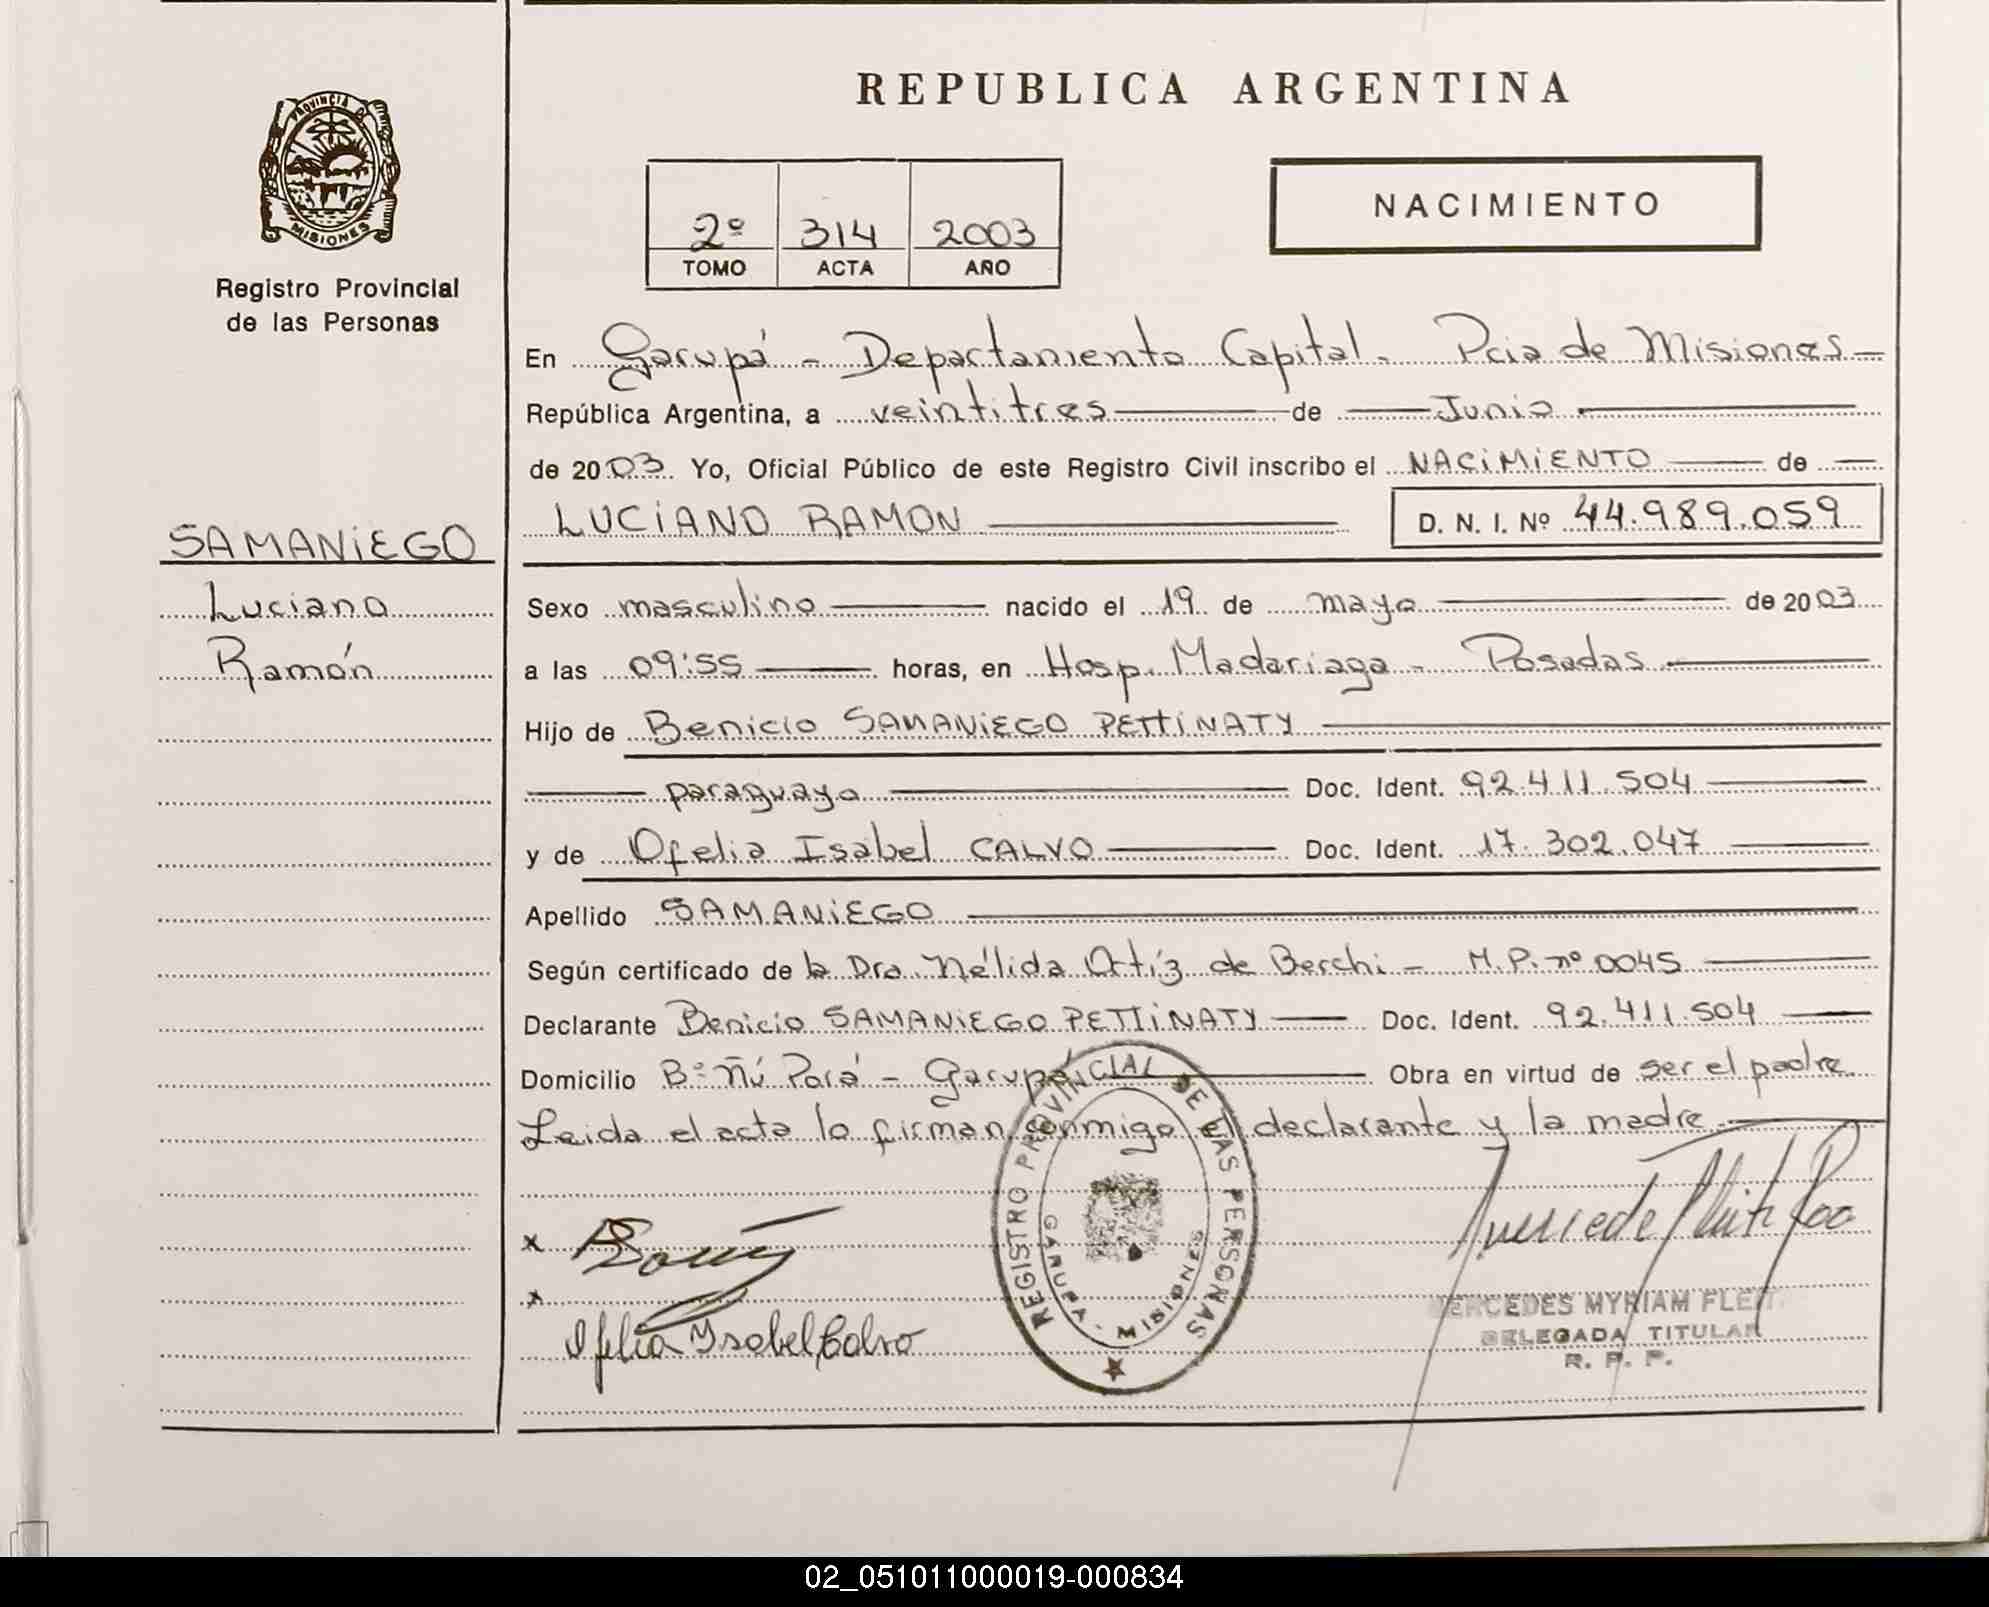 REPUBLICA ARGENTINA
PROVINCIA DE MISIONES
Registro Provincial
de las Personas
2º 314 2003
TOMO ACTA AÑO
NACIMIENTO
En Garupá - Departamento Capital - Pcia de Misiones
República Argentina, a veintitres de Junio
de 2003. Yo, Oficial Público de este Registro Civil inscribo el NACIMIENTO de
LUCIANO RAMON D. N. I. Nº 44.989.059
SAMANIEGO
Luciano
Ramón
Sexo masculino nacido el 19 de mayo de 2003
a las 09:55 horas, en Hosp. Madariaga - Posadas
Hijo de Benicio SAMANIEGO PETTINATY
paraguayo Doc. Ident. 92.411.504
y de Ofelia Isabel CALVO Doc. Ident. 17.302.047
Apellido SAMANIEGO
Según certificado de la Dra. Nélida Ortíz de Berchi - M.P. nº 0045
Declarante Benicio SAMANIEGO PETTINATY Doc. Ident. 92.411.504
Domicilio Bº Ñú Porá - Garupá Obra en virtud de ser el padre
Leida el acta lo firman conmigo el declarante y la madre
REGISTRO PROVINCIAL DE LAS PERSONAS
GARUPA - MISIONES
x
x
Ofelia Ysabel Calvo
MERCEDES MYRIAM
DELEGADA TITULAR
R. P. P.
02_051011000019-000834